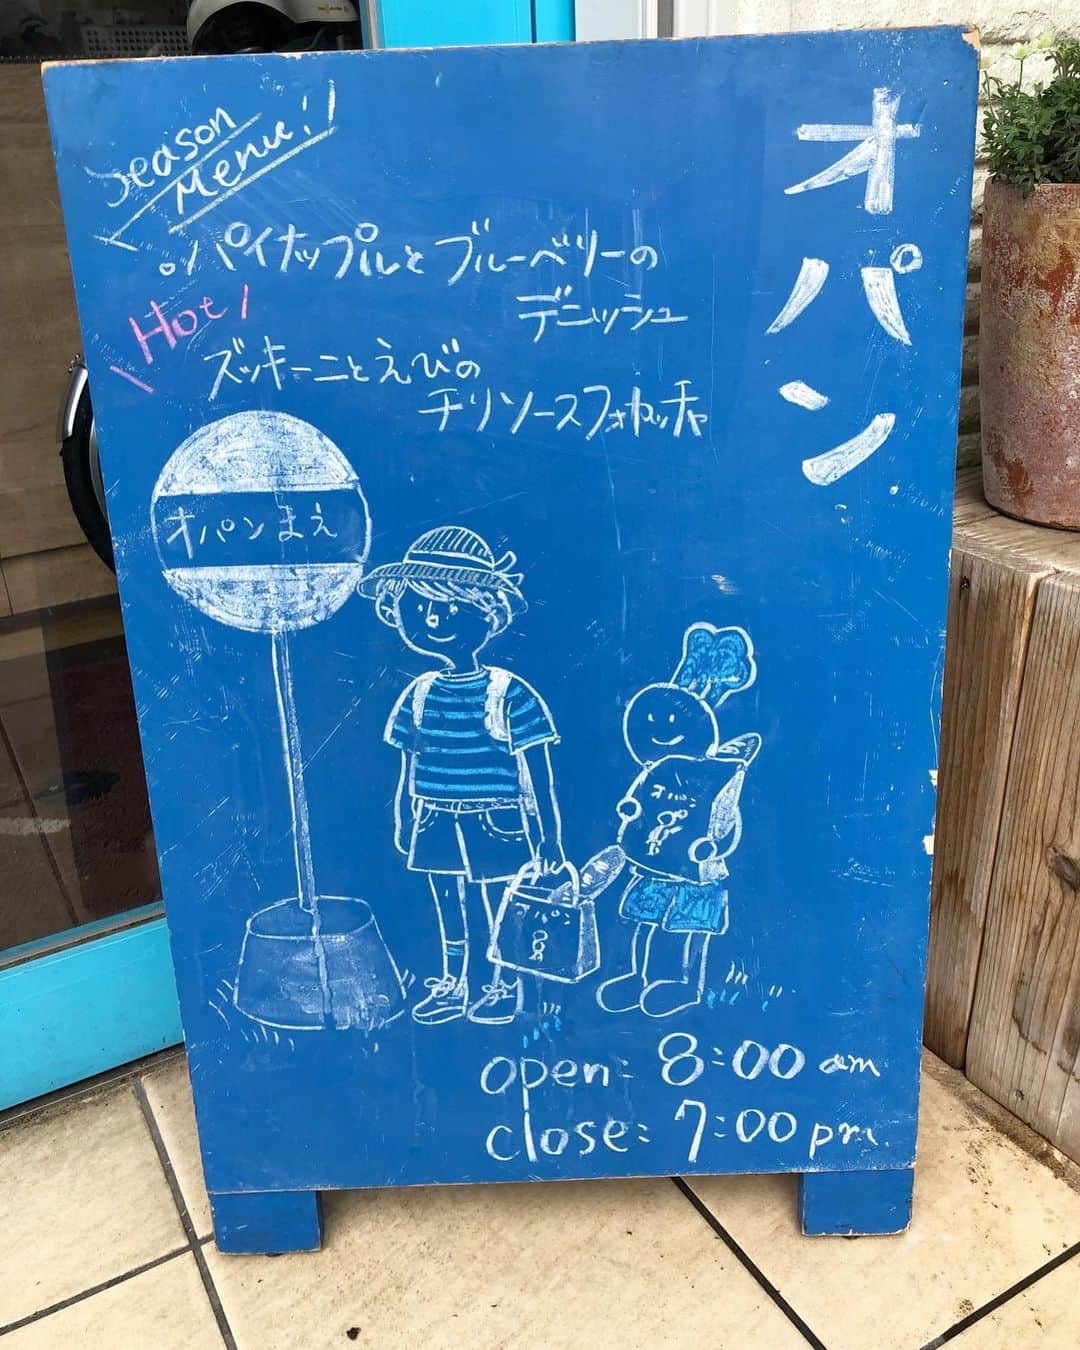 Season
Menu!!
オパン
。パイナップルとブルーベリーの
デニッシュ
Hot!
ズッキーニとえびの
チリソースフォカッチャ
オパンまえ
オパン
オパン
open: 8:00 am
close: 7:00 pm.